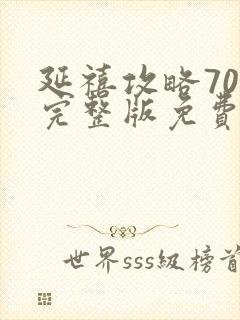 延禧攻略70
完整版免費
世界sss級榜首